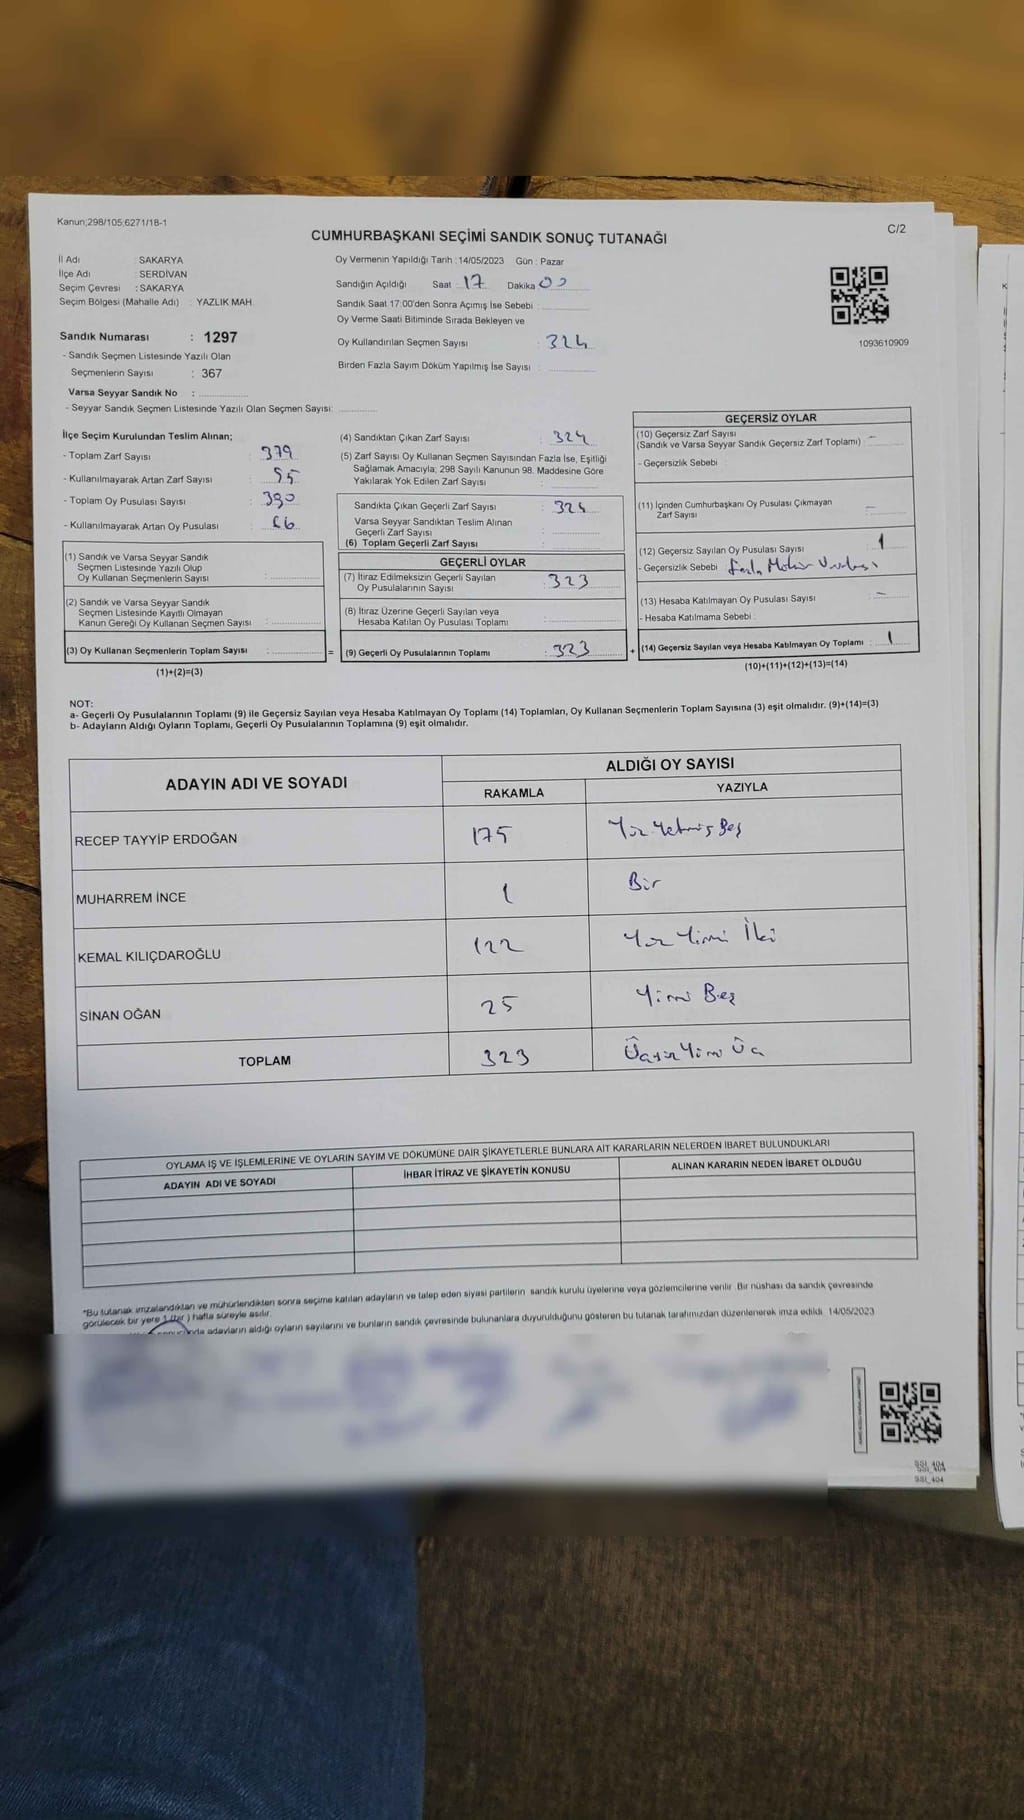 Kanun;298/105;6271/18-1
C/2
CUMHURBAŞKANI SEÇİMİ SANDIK SONUÇ TUTANAĞI
İl Adı : SAKARYA
İlçe Adı : SERDİVAN
Seçim Çevresi : SAKARYA
Seçim Bölgesi (Mahalle Adı) : YAZLIK MAH.
Oy Vermenin Yapıldığı Tarih :14/05/2023 Gün : Pazar
Sandığın Açıldığı Saat 17 Dakika 00
Sandık Saat 17:00'den Sonra Açımış İse Sebebi :
Oy Verme Saati Bitiminde Sırada Bekleyen ve
Oy Kullandırılan Seçmen Sayısı : 324
Birden Fazla Sayım Döküm Yapılmış İse Sayısı :
1093610909
Sandık Numarası : 1297
- Sandık Seçmen Listesinde Yazılı Olan
Seçmenlerin Sayısı : 367
Varsa Seyyar Sandık No :
- Seyyar Sandık Seçmen Listesinde Yazılı Olan Seçmen Sayısı:
İlçe Seçim Kurulundan Teslim Alınan;
- Toplam Zarf Sayısı : 379
- Kullanılmayarak Artan Zarf Sayısı : 55
- Toplam Oy Pusulası Sayısı : 390
- Kullanılmayarak Artan Oy Pusulası : 66
(1) Sandık ve Varsa Seyyar Sandık
Seçmen Listesinde Yazılı Olup
Oy Kullanan Seçmenlerin Sayısı :
(2) Sandık ve Varsa Seyyar Sandık
Seçmen Listesinde Kayıtlı Olmayan
Kanun Gereği Oy Kullanan Seçmen Sayısı :
(3) Oy Kullanan Seçmenlerin Toplam Sayısı :
(1)+(2)=(3)
=
(4) Sandıktan Çıkan Zarf Sayısı : 324
(5) Zarf Sayısı Oy Kullanan Seçmen Sayısından Fazla İse, Eşitliği
Sağlamak Amacıyla; 298 Sayılı Kanunun 98. Maddesine Göre
Yakılarak Yok Edilen Zarf Sayısı :
Sandıkta Çıkan Geçerli Zarf Sayısı : 324
Varsa Seyyar Sandıktan Teslim Alınan
Geçerli Zarf Sayısı :
(6) Toplam Geçerli Zarf Sayısı :
GEÇERLİ OYLAR
(7) İtiraz Edilmeksizin Geçerli Sayılan
Oy Pusulalarının Sayısı : 323
(8) İtiraz Üzerine Geçerli Sayılan veya
Hesaba Katılan Oy Pusulası Toplamı :
(9) Geçerli Oy Pusulalarının Toplamı : 323
+
GEÇERSİZ OYLAR
(10) Geçersiz Zarf Sayısı
(Sandık ve Varsa Seyyar Sandık Geçersiz Zarf Toplamı) : -
- Geçersizlik Sebebi :
(11) İçinden Cumhurbaşkanı Oy Pusulası Çıkmayan
Zarf Sayısı : -
(12) Geçersiz Sayılan Oy Pusulası Sayısı : 1
- Geçersizlik Sebebi : Fazla Mühür
(13) Hesaba Katılmayan Oy Pusulası Sayısı : -
- Hesaba Katılmama Sebebi :
(14) Geçersiz Sayılan veya Hesaba Katılmayan Oy Toplamı : 1
(10)+(11)+(12)+(13)=(14)
NOT:
a- Geçerli Oy Pusulalarının Toplamı (9) ile Geçersiz Sayılan veya Hesaba Katılmayan Oy Toplamı (14) Toplamları, Oy Kullanan Seçmenlerin Toplam Sayısına (3) eşit olmalıdır. (9)+(14)=(3)
b- Adayların Aldığı Oyların Toplamı, Geçerli Oy Pusulalarının Toplamına (9) eşit olmalıdır.
ADAYIN ADI VE SOYADI
ALDIĞI OY SAYISI
RAKAMLA YAZIYLA
RECEP TAYYİP ERDOĞAN 175 Yüz Yetmiş Beş
MUHARREM İNCE 1 Bir
KEMAL KILIÇDAROĞLU 122 Yüz Yirmi İki
SİNAN OĞAN 25 Yirmi Beş
TOPLAM 323 Üçyüz Yirmi Üç
OYLAMA İŞ VE İŞLEMLERİNE VE OYLARIN SAYIM VE DÖKÜMÜNE DAİR ŞİKAYETLERLE BUNLARA AİT KARARLARIN NELERDEN İBARET BULUNDUKLARI
ADAYIN ADI VE SOYADI İHBAR İTİRAZ VE ŞİKAYETİN KONUSU ALINAN KARARIN NEDEN İBARET OLDUĞU
*Bu tutanak imzalandıktan ve mühürlendikten sonra seçime katılan adayların ve talep eden siyasi partilerin sandık kurulu üyelerine veya gözlemcilerine verilir. Bir nüshası da sandık çevresinde
görülecek bir yere 1 (bir ) hafta süreyle asılır.
adayların aldığı oyların sayılarını ve bunların sandık çevresinde bulunanlara duyurulduğunu gösteren bu tutanak tarafımızdan düzenlenerek imza edildi. 14/05/2023
SSI_404
SSI_404